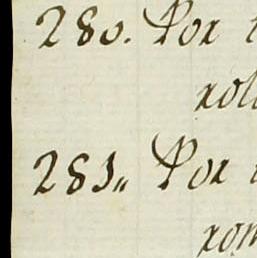 280. Por
rol
281,, Por
rom